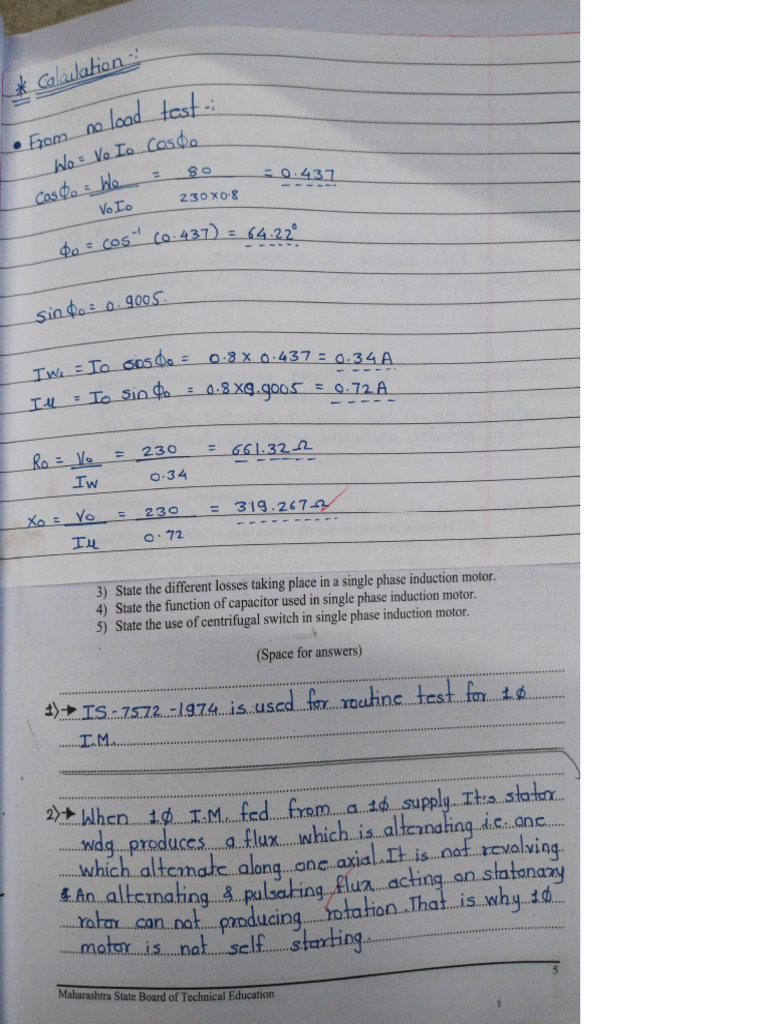 * Calculation -:
• From no load test -:
W₀ = V₀ I₀ Cosϕ₀
Cosϕ₀ = W₀/V₀I₀ = 80/230×0.8 = 0.437
ϕ₀ = cos⁻¹ (0.437) = 64.22°
sinϕ₀ = 0.9005.
Iw = I₀ cosϕ₀ = 0.8 × 0.437 = 0.34A
Iμ = I₀ sinϕ₀ = 0.8×0.9005 = 0.72A
R₀ = V₀/Iw = 230/0.34 = 661.32Ω
X₀ = V₀/Iμ = 230/0.72 = 319.267Ω
3) State the different losses taking place in a single phase induction motor.
4) State the function of capacitor used in single phase induction motor.
5) State the use of centrifugal switch in single phase induction motor.
(Space for answers)
1)→ IS-7572-1974 is used for routine test for 1ϕ
I.M.
2)→ When 1ϕ I.M. fed from a 1ϕ supply. It's stator
wdg produces a flux which is alternating i.e. one
which alternate along one axial. It is not revolving.
& An alternating & pulsating flux acting on stationary
rotor can not producing rotation. That is why 1ϕ
motor is not self starting.
5
Maharashtra State Board of Technical Education